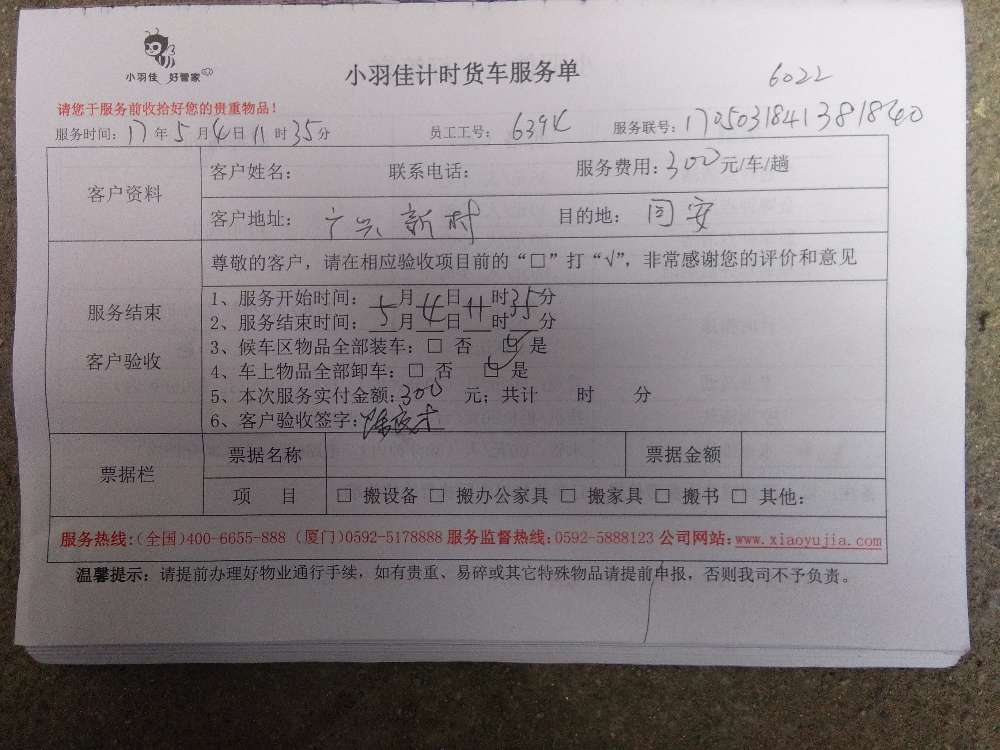 小羽佳 好管家
小羽佳计时货车服务单
6022
请您于服务前收拾好您的贵重物品!
服务时间: 17 年 5 月 4 日 11 时 35 分 员工工号: 服务联号: 17050318413818740
客户资料
客户姓名: 联系电话: 服务费用: 300 元/车/趟
客户地址: 广兴新村 目的地: 同安
服务结束
客户验收
尊敬的客户，请在相应验收项目前的“□”打“√”，非常感谢您的评价和意见
1、服务开始时间: 5 月 4 日 11 时 35 分
2、服务结束时间: 月 日 时 分
3、候车区物品全部装车: □ 否 ☑ 是
4、车上物品全部卸车: □ 否 ☑ 是
5、本次服务实付金额: 300 元; 共计 时 分
6、客户验收签字:
票据栏
票据名称 票据金额
项 目 □ 搬设备 □ 搬办公家具 □ 搬家具 □ 搬书 □ 其他:
服务热线:(全国)400-6655-888 (厦门)0592-5178888 服务监督热线:0592-5888123 公司网站:www.xiaoyujia.com
温馨提示: 请提前办理好物业通行手续，如有贵重、易碎或其它特殊物品请提前申报，否则我司不予负责。